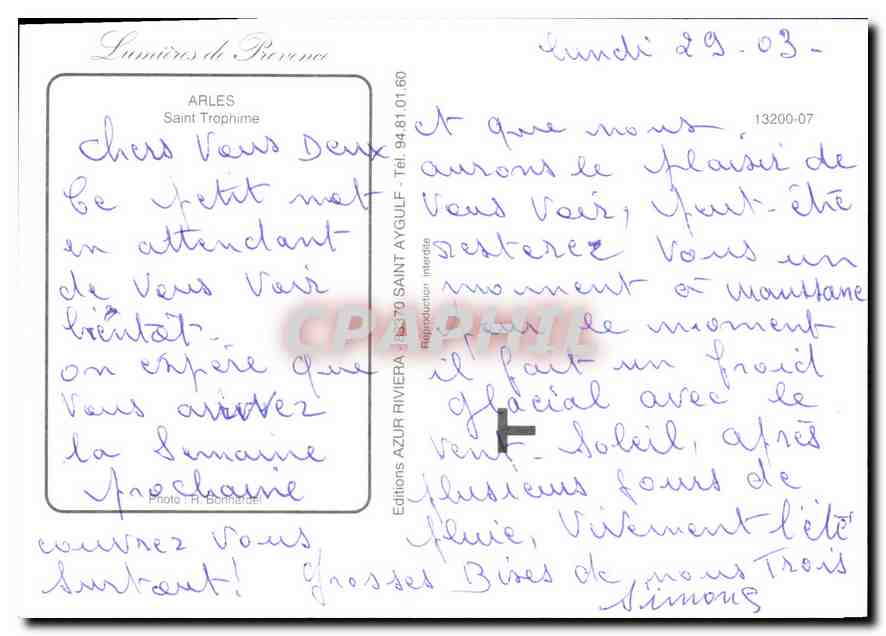 Lumières de Provence
lundi 29-03-
ARLES
Saint Trophime
13200-07
Chers Vous Deux
Ce petit mot
en attendant
de Vous Voir
bientôt.
on espère que
Vous arrivez
la Semaine
prochaine
Photo : R. Bonnardel
et que nous
aurons le plaisir de
Vous Voir, peut-être
resterez Vous un
moment à Maussane
pour le moment
il fait un froid
glacial avec le
vent. Soleil, après
plusieurs jours de
pluie, Vivement l'été
couvrez Vous
surtout! Grosses Bises de nous Trois
Simone
Editions AZUR RIVIERA - 83370 SAINT AYGULF - Tél. 94.81.01.60
Reproduction interdite
CPAPHIL